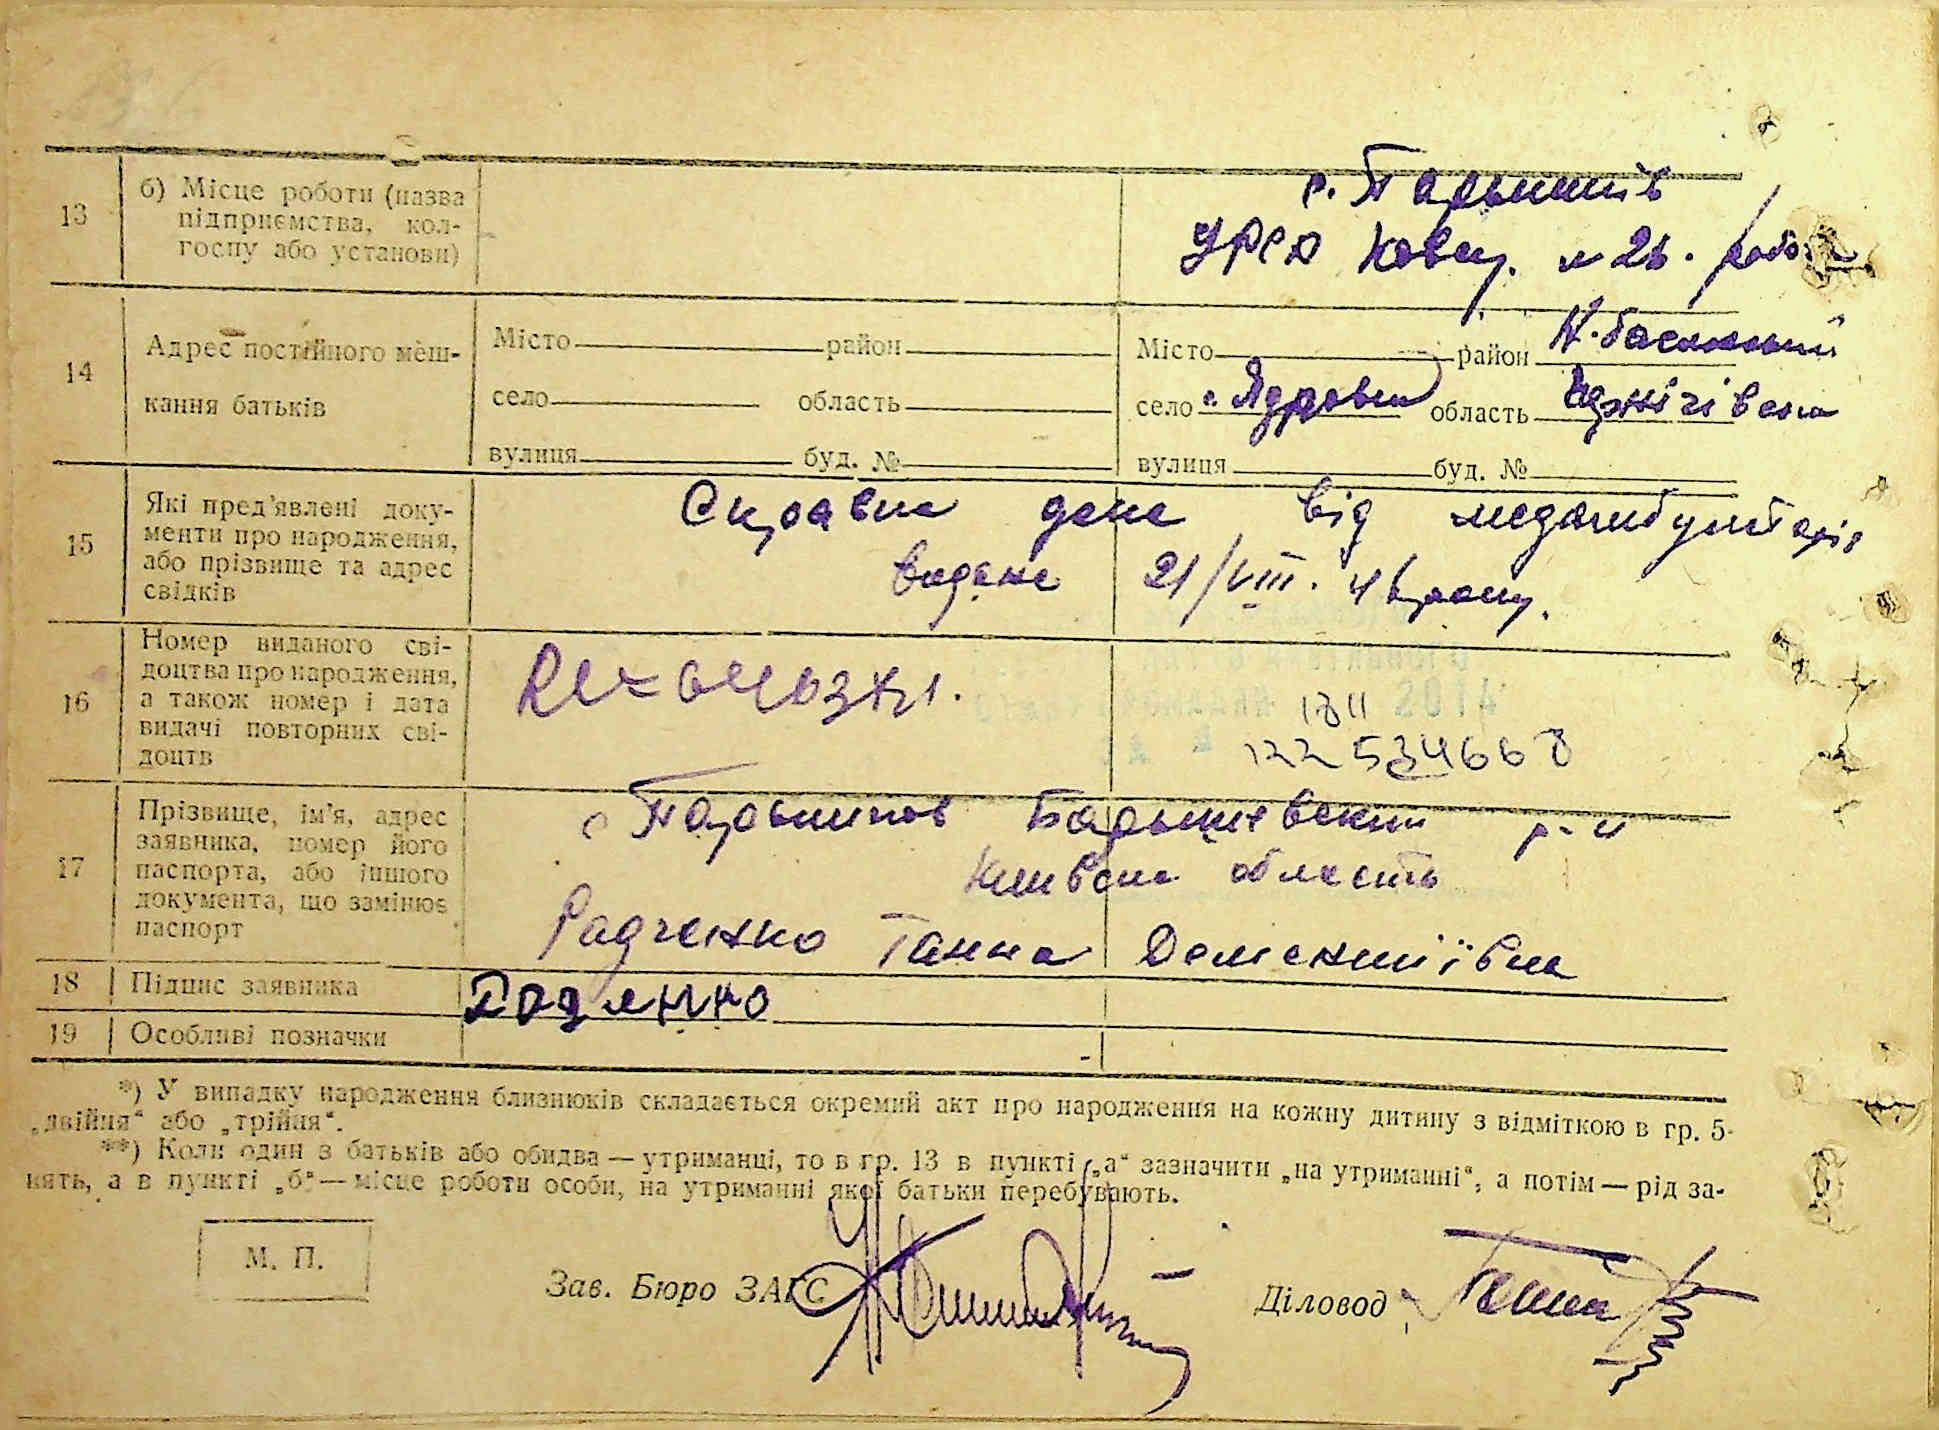 13 б) Місце роботи (назва
підприємства, кол-
госпу або установи)
с. Паришків
УРСР
14 Адрес постійного меш-
кання батьків
Місто район
село область
вулиця буд. №
Місто район Н. басанський
село с. Ядрівка область Чернігівська
вулиця буд. №
15 Які пред'явлені доку-
менти про народження,
або прізвище та адрес
свідків
Справка дана від медамбулаторії
видана 21/VIII. 41 року.
16 Номер виданого сві-
доцтва про народження,
а також номер і дата
видачі повторних сві-
доцтв
2014
17 Прізвище, ім'я, адрес
заявника, номер його
паспорта, або іншого
документа, що замінює
паспорт
с Паришков Баришевский р-н
Київська область
Радченко Ганна
18 Підпис заявника
19 Особливі позначки
*) У випадку народження близнюків складається окремий акт про народження на кожну дитину з відміткою в гр. 5-
„двійня“ або „трійня“.
**) Коли один з батьків або обидва — утриманці, то в гр. 13 в пункті „а“ зазначити „на утриманні“, а потім — рід за-
нять, а в пункті „б“ — місце роботи особи, на утриманні якої батьки перебувають.
М. П.
Зав. Бюро ЗАГС
Діловод